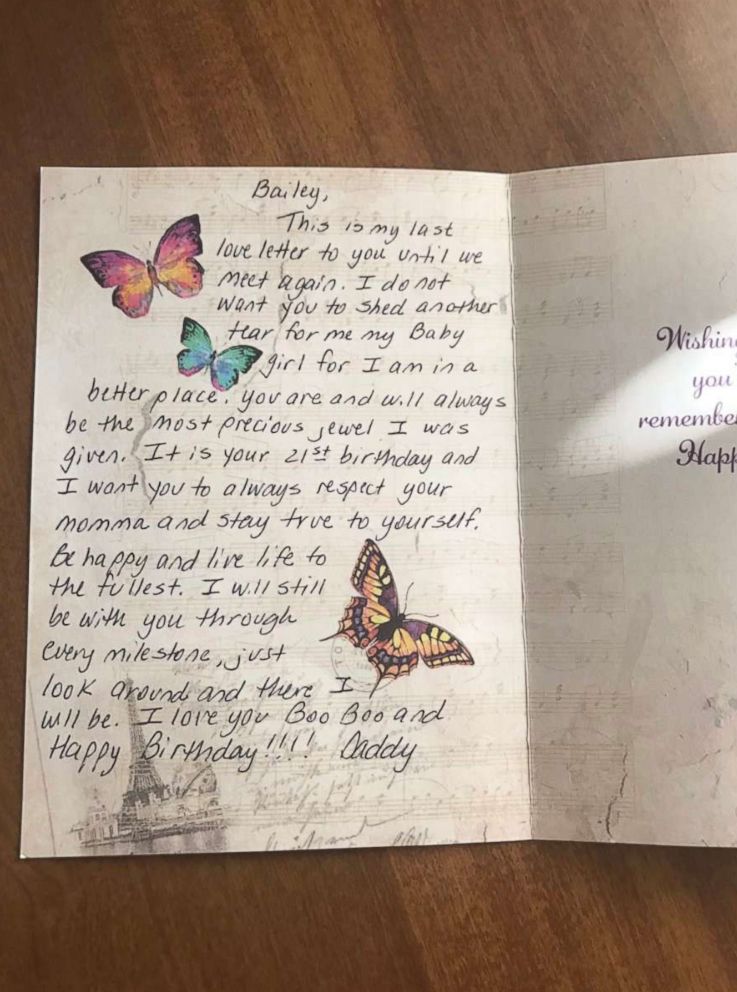 Bailey,
This is my last
love letter to you until we
meet again. I do not
want you to shed another
tear for me my Baby
girl for I am in a
better place. you are and will always
be the most precious jewel I was
given. It is your 21st birthday and
I want you to always respect your
momma and stay true to yourself.
Be happy and live life to
the fullest. I will still
be with you through
every milestone, just
look around and there I
will be. I love you Boo Boo and
Happy Birthday!!!! Daddy
Wishin
you
remembe
Happ